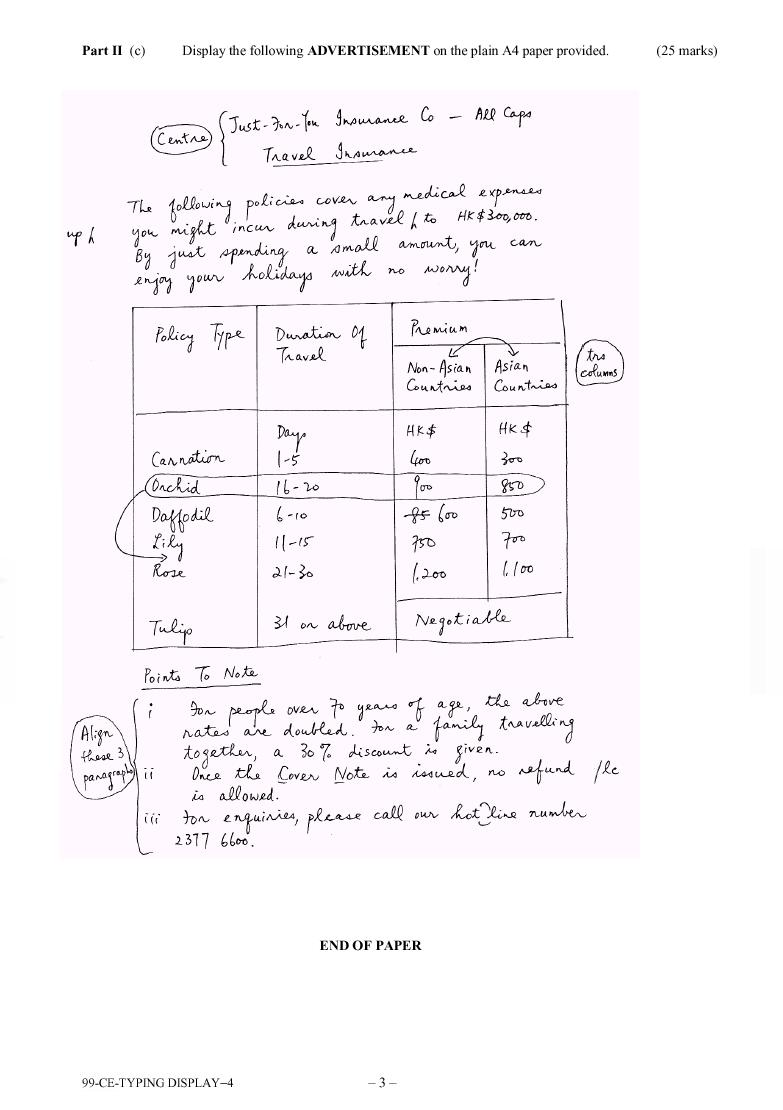 Part II (c) Display the following ADVERTISEMENT on the plain A4 paper provided. (25 marks)
Centre
Just-For-You Insurance Co — All Caps
Travel Insurance
The following policies cover any medical expenses
up you might incur during travel to HK$300,000.
By just spending a small amount, you can
enjoy your holidays with no worry!
Policy Type Duration Of Travel Premium
Non-Asian Countries Asian Countries
trs columns
Days HK$ HK$
Carnation 1-5 400 300
Orchid 16-20 900 850
Daffodil 6-10 85 600 500
Lily 11-15 750 700
Rose 21-30 1,200 1,100
Tulip 31 or above Negotiable
Points To Note
Align these 3 paragraphs
i For people over 70 years of age, the above
rates are doubled. For a family travelling
together, a 30% discount is given.
ii Once the Cover Note is issued, no refund /lc
is allowed.
iii For enquiries, please call our hot line number
2377 6600.
END OF PAPER
99-CE-TYPING DISPLAY–4 – 3 –